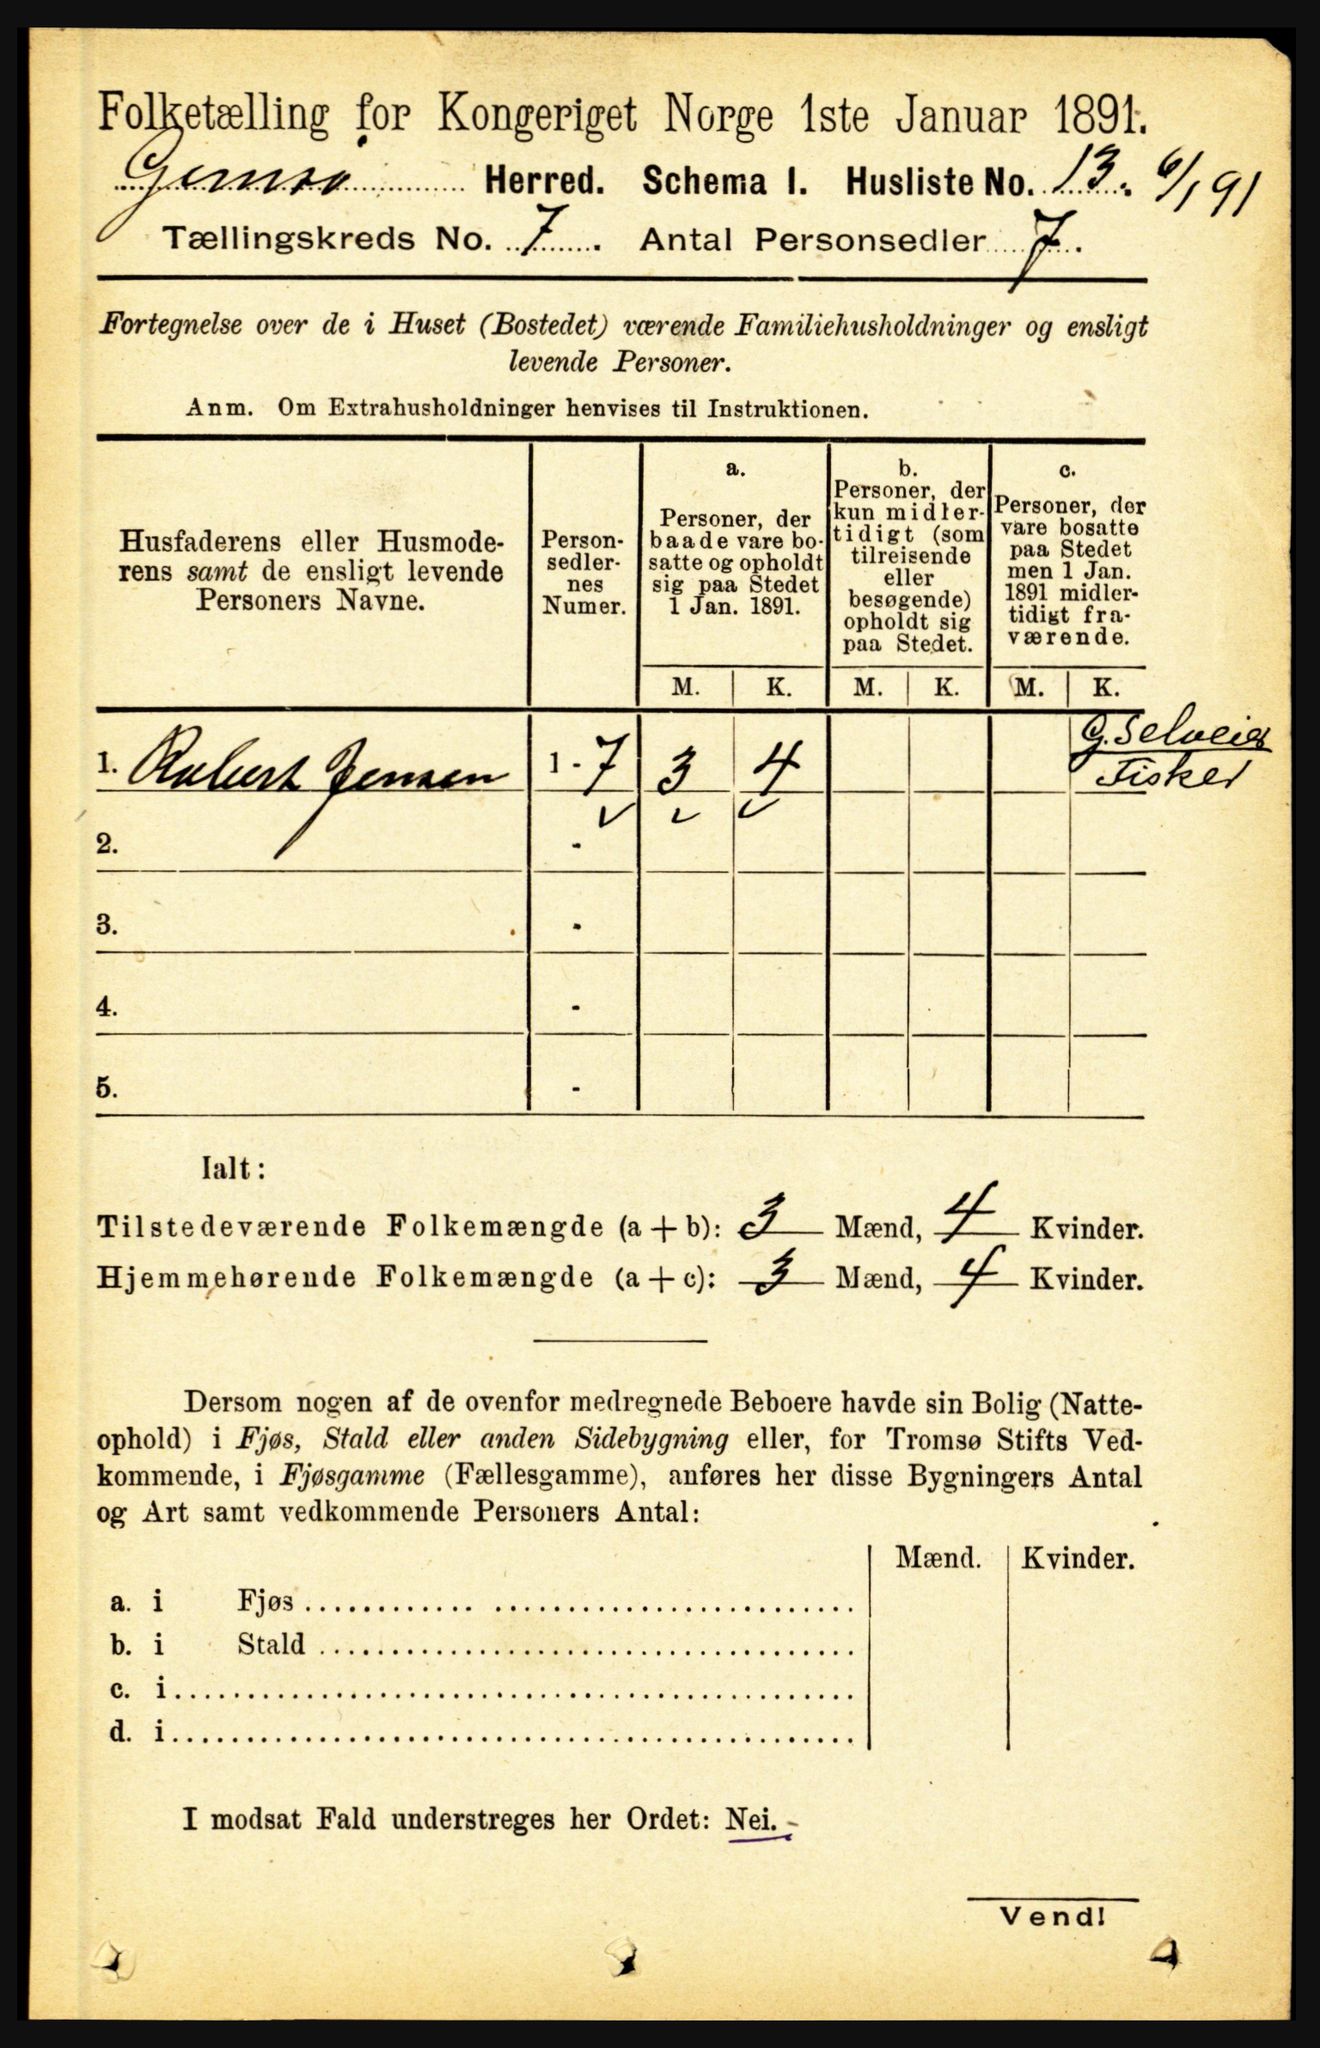 Folketælling for Kongeriget Norge 1ste Januar 1891.
Gimsø Herred. Schema I. Husliste No. 13. 6/1 91
Tællingskreds No. 7. Antal Personsedler 7.
Fortegnelse over de i Huset (Bostedet) værende Familiehusholdninger og ensligt
levende Personer.
Anm. Om Extrahusholdninger henvises til Instruktionen.
Husfaderens eller Husmode-
rens samt de ensligt levende
Personers Navne.
Person-
sedler-
nes
Numer.
a.
Personer, der
baade vare bo-
satte og opholdt
sig paa Stedet
1 Jan. 1891.
b.
Personer, der
kun midler-
tidigt (som
tilreisende
eller
besøgende)
opholdt sig
paa Stedet.
c.
Personer, der
vare bosatte
paa Stedet
men 1 Jan.
1891 midler-
tidigt fra-
værende.
M. K. M. K. M. K.
1. Robert Jensen 1 - 7 3 4 G. Selveier
Fisker
2. -
3. -
4. -
5. -
Ialt:
Tilstedeværende Folkemængde (a + b): 3 Mænd, 4 Kvinder.
Hjemmehørende Folkemængde (a + c): 3 Mænd, 4 Kvinder.
Dersom nogen af de ovenfor medregnede Beboere havde sin Bolig (Natte-
ophold) i Fjøs, Stald eller anden Sidebygning eller, for Tromsø Stifts Ved-
kommende, i Fjøsgamme (Fællesgamme), anføres her disse Bygningers Antal
og Art samt vedkommende Personers Antal:
Mænd. Kvinder.
a. i Fjøs
b. i Stald
c. i
d. i
I modsat Fald understreges her Ordet: Nei.
Vend!